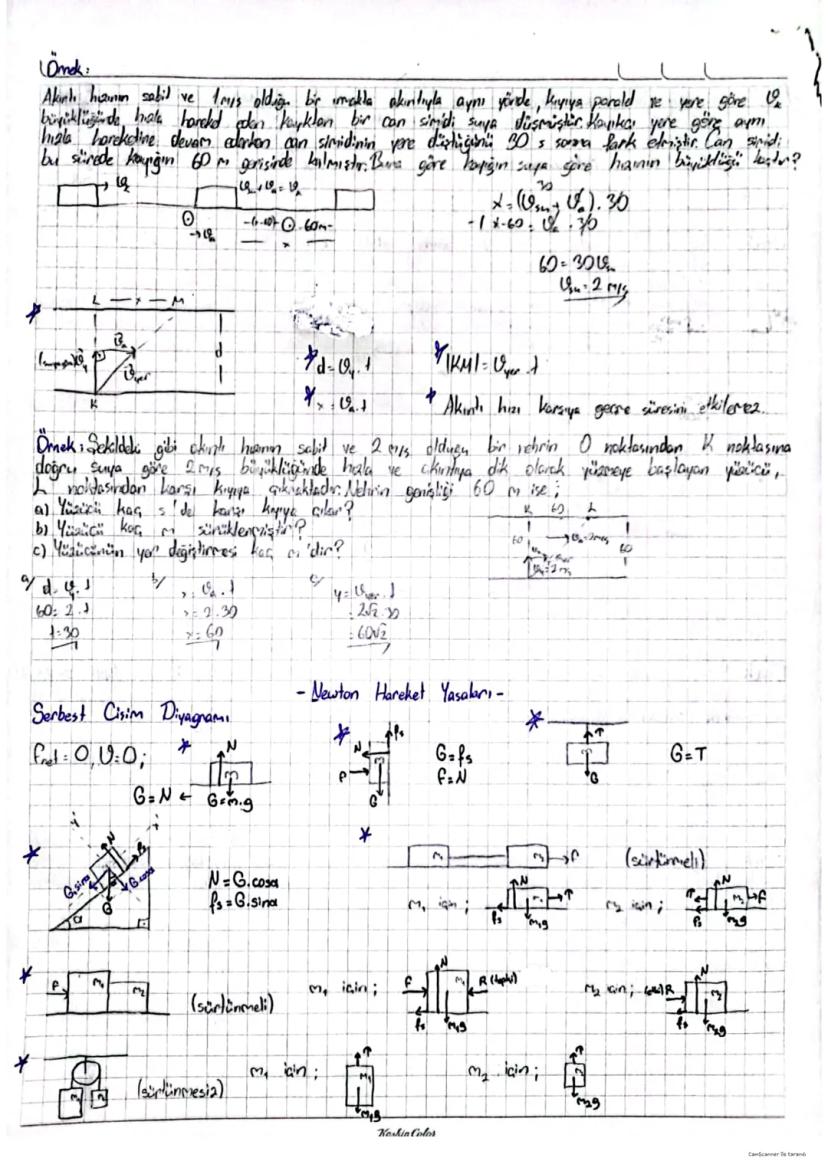 Örnek:
Akıntı hızının sabit ve 1 m/s olduğu bir ırmakta akıntıyla aynı yönde, kıyıya paralel ve yere göre
büyüklüğünde hızla hareket eden kayıktan bir can simidi suya düşmüştür. Kayıkçı yere göre aynı
hızla hareketine devam ederken can simidinin yere düştüğünü 30 s sonra fark etmiştir. Can simidi
bu sürede kayığın 60 m gerisinde kalmıştır. Buna göre kayığın suya göre hızının büyüklüğü kaçtır?
60m
x
x = (ϑsu + ϑa) . 30
- / x-60 = ϑa . 30
60 = 30ϑsu
ϑsu = 2 m/s
L — x — M
ϑa
ϑyer
d
K
* d = ϑy . t
* |KM| = ϑyer . t
* x = ϑa . t
* Akıntı hızı karşıya geçme süresini etkilemez.
Örnek: Şekildeki gibi akıntı hızının sabit ve 2 m/s olduğu bir nehrin O noktasından K noktasına
doğru suya göre 2 m/s büyüklüğünde hızla ve akıntıya dik olarak yüzmeye başlayan yüzücü,
L noktasından karşı kıyıya çıkmaktadır. Nehrin genişliği 60 m ise;
a) Yüzücü kaç s'de karşı kıyıya çıkar?
b) Yüzücü kaç m sürüklenmiştir?
c) Yüzücünün yer değiştirmesi kaç m'dir?
K 60 L
60
ϑa=2m/s
60
a/ d = ϑy . t
60 = 2 . t
t = 30
b/ x = ϑa . t
x = 2 . 30
x = 60
c/ y = ϑyer . t
= 2√2 . 30
= 60√2
- Newton Hareket Yasaları -
Serbest Cisim Diyagramı
Fnet = 0, ϑ=0;
*
N
m
G = N ← G=m.g
*
fs
N
F
m
G
G = fs
F = N
*
T
m
G
G = T
*
N
fs
G.sinα
G.cosα
G
α
N = G.cosα
fs = G.sinα
*
m1
m2
F
(sürtünmeli)
m1 için;
N
T
fs
m1g
m2 için;
N
T
m2
F
fs
m2g
*
F
m1
m2
(sürtünmeli)
m1 için;
F
N
m1
R (tepki)
fs
m1g
m2 için;
(etki) R
N
m2
fs
m2g
*
m1
(sürtünmesiz)
m1 için;
T
m1
m1g
m2 için;
T
m2g
Keskin Color
CamScanner ile tarandı